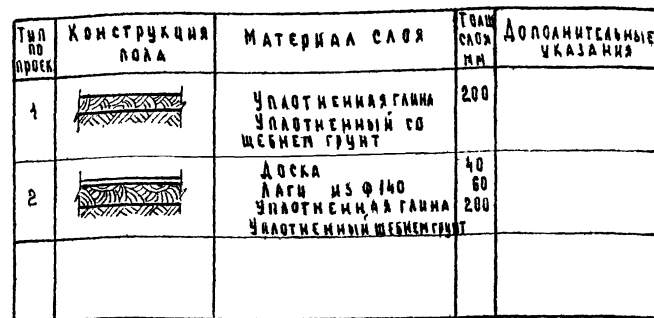 Тип по проек.
Конструкция пола
Материал слоя
Толщ слоя мм
Дополнительные указания
1
Уплотненная глина
200
Уплотненный со
щебнем грунт
2
Доска
40
Лаги из φ 140
60
Уплотненная глина
200
Уплотненный щебнем грунт